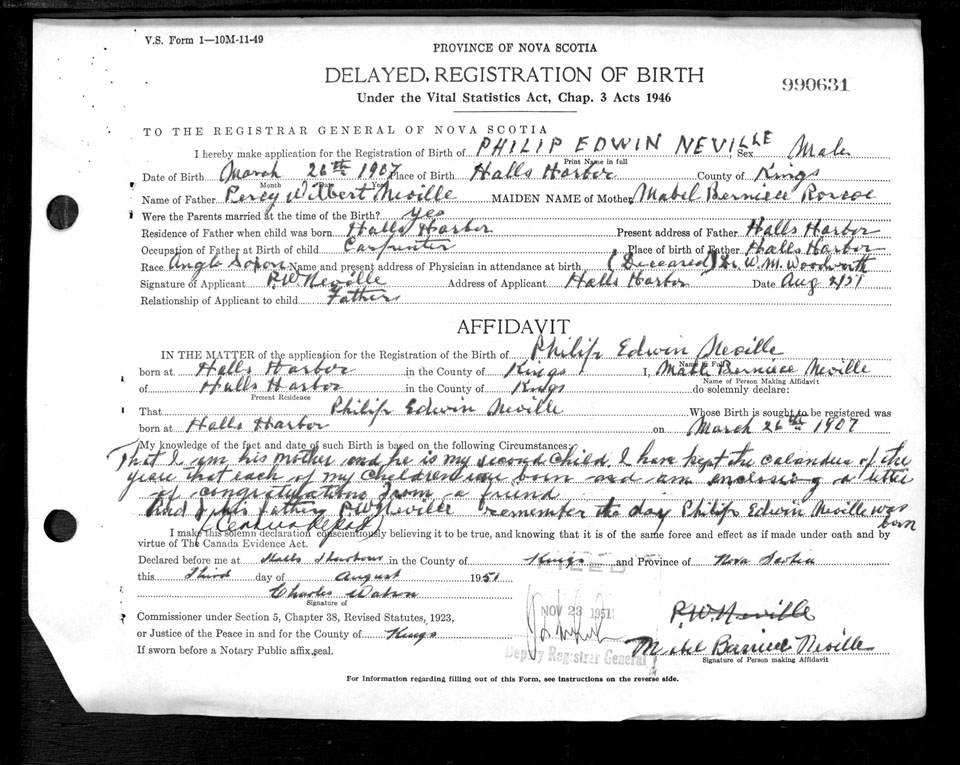 V.S. Form 1—10M-11-49
PROVINCE OF NOVA SCOTIA
DELAYED REGISTRATION OF BIRTH
990631
Under the Vital Statistics Act, Chap. 3 Acts 1946
TO THE REGISTRAR GENERAL OF NOVA SCOTIA
I hereby make application for the Registration of Birth of PHILIP EDWIN NEVILLE, Sex Male
Print Name in full
Date of Birth March 26th 1907 Place of Birth Halls Harbor County of Kings
Month Day Year
Name of Father Percy Wilbert Neville MAIDEN NAME of Mother Mabel Berniece Roscoe
Were the Parents married at the time of the Birth? Yes
Residence of Father when child was born Halls Harbor Present address of Father Halls Harbor
Occupation of Father at Birth of child Carpenter Place of birth of Father Halls Harbor
Race Anglo Saxon Name and present address of Physician in attendance at birth (Deceased) Dr. W. M. Woodworth
Signature of Applicant P.W. Neville Address of Applicant Halls Harbor Date Aug 2/51
Relationship of Applicant to child Father
AFFIDAVIT
IN THE MATTER of the application for the Registration of the Birth of Philip Edwin Neville
Name in Full
born at Halls Harbor in the County of Kings I, Mabel Berniece Neville
Name of Person Making Affidavit
of Halls Harbor in the County of Kings do solemnly declare:
Present Residence
That Philip Edwin Neville Whose Birth is sought to be registered was
born at Halls Harbor on March 26th 1907
My knowledge of the fact and date of such Birth is based on the following Circumstances:
That I am his mother and he is my second child. I have kept the calandea of the
year that each of my children was born and am enclosing a letter
of congratulations from a friend
And I his father P.W. Neville remember the day Philip Edwin Neville was
born
I make this solemn declaration conscientiously believing it to be true, and knowing that it is of the same force and effect as if made under oath and by
virtue of The Canada Evidence Act.
Declared before me at Halls Harbour in the County of Kings and Province of Nova Scotia
this Third day of August 1951
FILED
Charles Watson
Signature of
NOV 23 1951
Commissioner under Section 5, Chapter 38, Revised Statutes, 1923,
P.W. Neville
or Justice of the Peace in and for the County of Kings
Mabel Berniece Neville
If sworn before a Notary Public affix seal.
Deputy Registrar General
Signature of Person making Affidavit
For Information regarding filling out of this Form, see instructions on the reverse side.